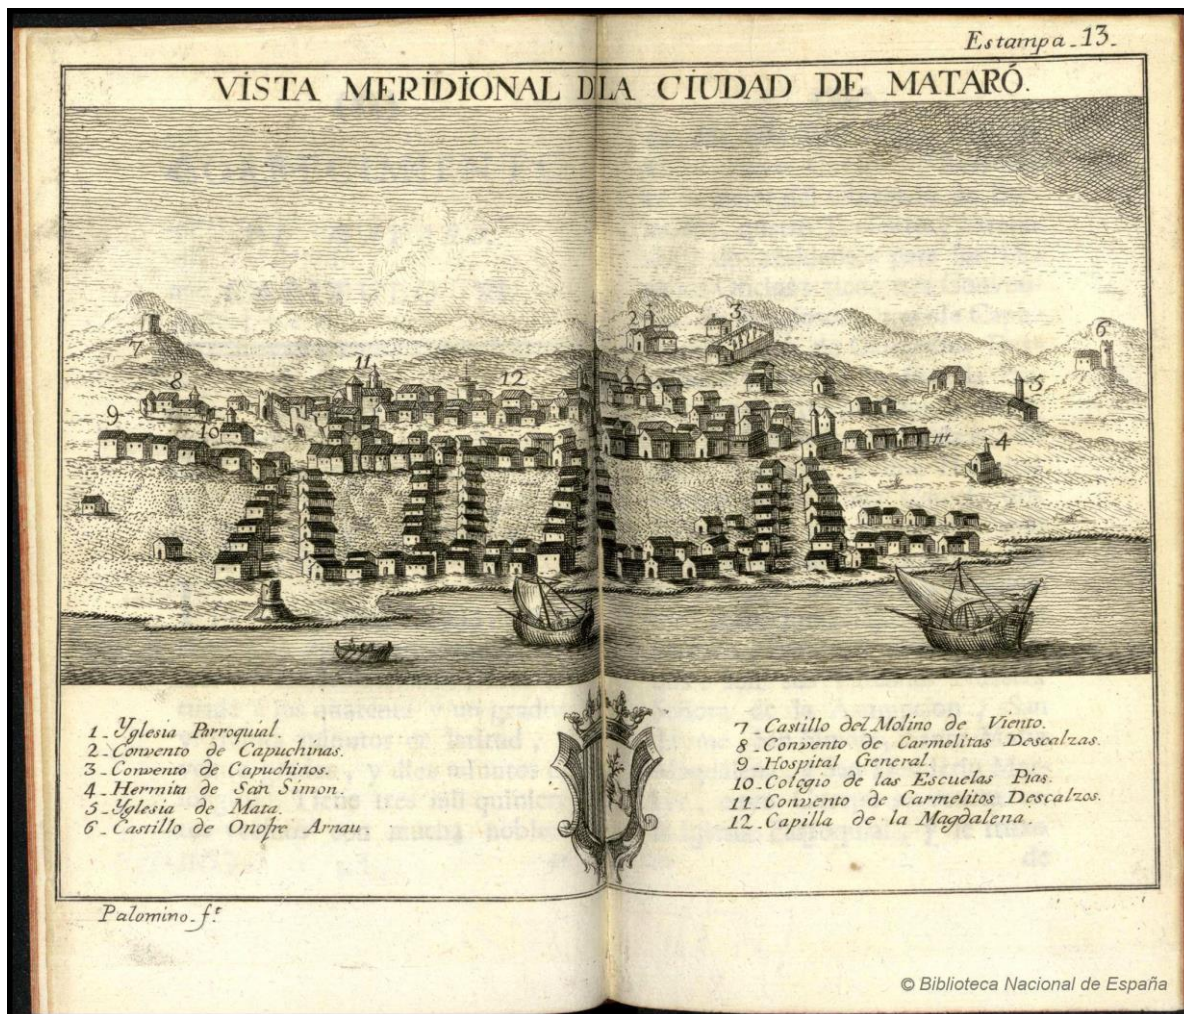 Estampa_13_
VISTA MERIDIONAL DLA CIUDAD DE MATARÓ.
2
3
6
7
11
12
8
5
9
10
4
1_Yglesia Parroquial.
2_Convento de Capuchinas.
3_Convento de Capuchinos.
4_Hermita de San Simon.
5_Yglesia de Mata.
6_Castillo de Onofre Arnau
7_Castillo del Molino de Viento.
8_Convento de Carmelitas Descalzas.
9_Hospital General.
10_Colegio de las Escuelas Pias.
11_Convento de Carmelitos Descalzos.
12_Capilla de la Magdalena.
Palomino_f.t
© Biblioteca Nacional de España